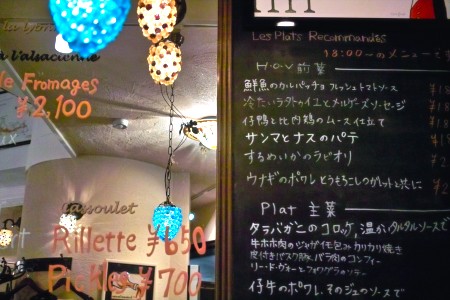 la Lyonn
à l'alsacienne
de Fromages
¥2,100
Cassoulet
Rillette ¥650
Pickles ¥700
Les Plats Recommandés
18:00〜のメニューです
H.O.V 前菜
鮮魚のカルパッチョ フレッシュトマトソース
冷たいラタトゥイユとメルゲーズ・ソーセージ
仔鴨と比内鶏のムース仕立て
サンマとナスのパテ
するめいかのラビオリ
ウナギのポワレ とうもろこしのガレットと共に
Plat 主菜
タラバガニのコロッケ、温かいタルタルソースで
牛ホホ肉のジャガイモ包みカリカリ焼き
皮付きバスク豚、バラ肉のコンフィー
リード・ヴォーとフォワグラのソテー
仔牛のポワレ、そのジュのソースで